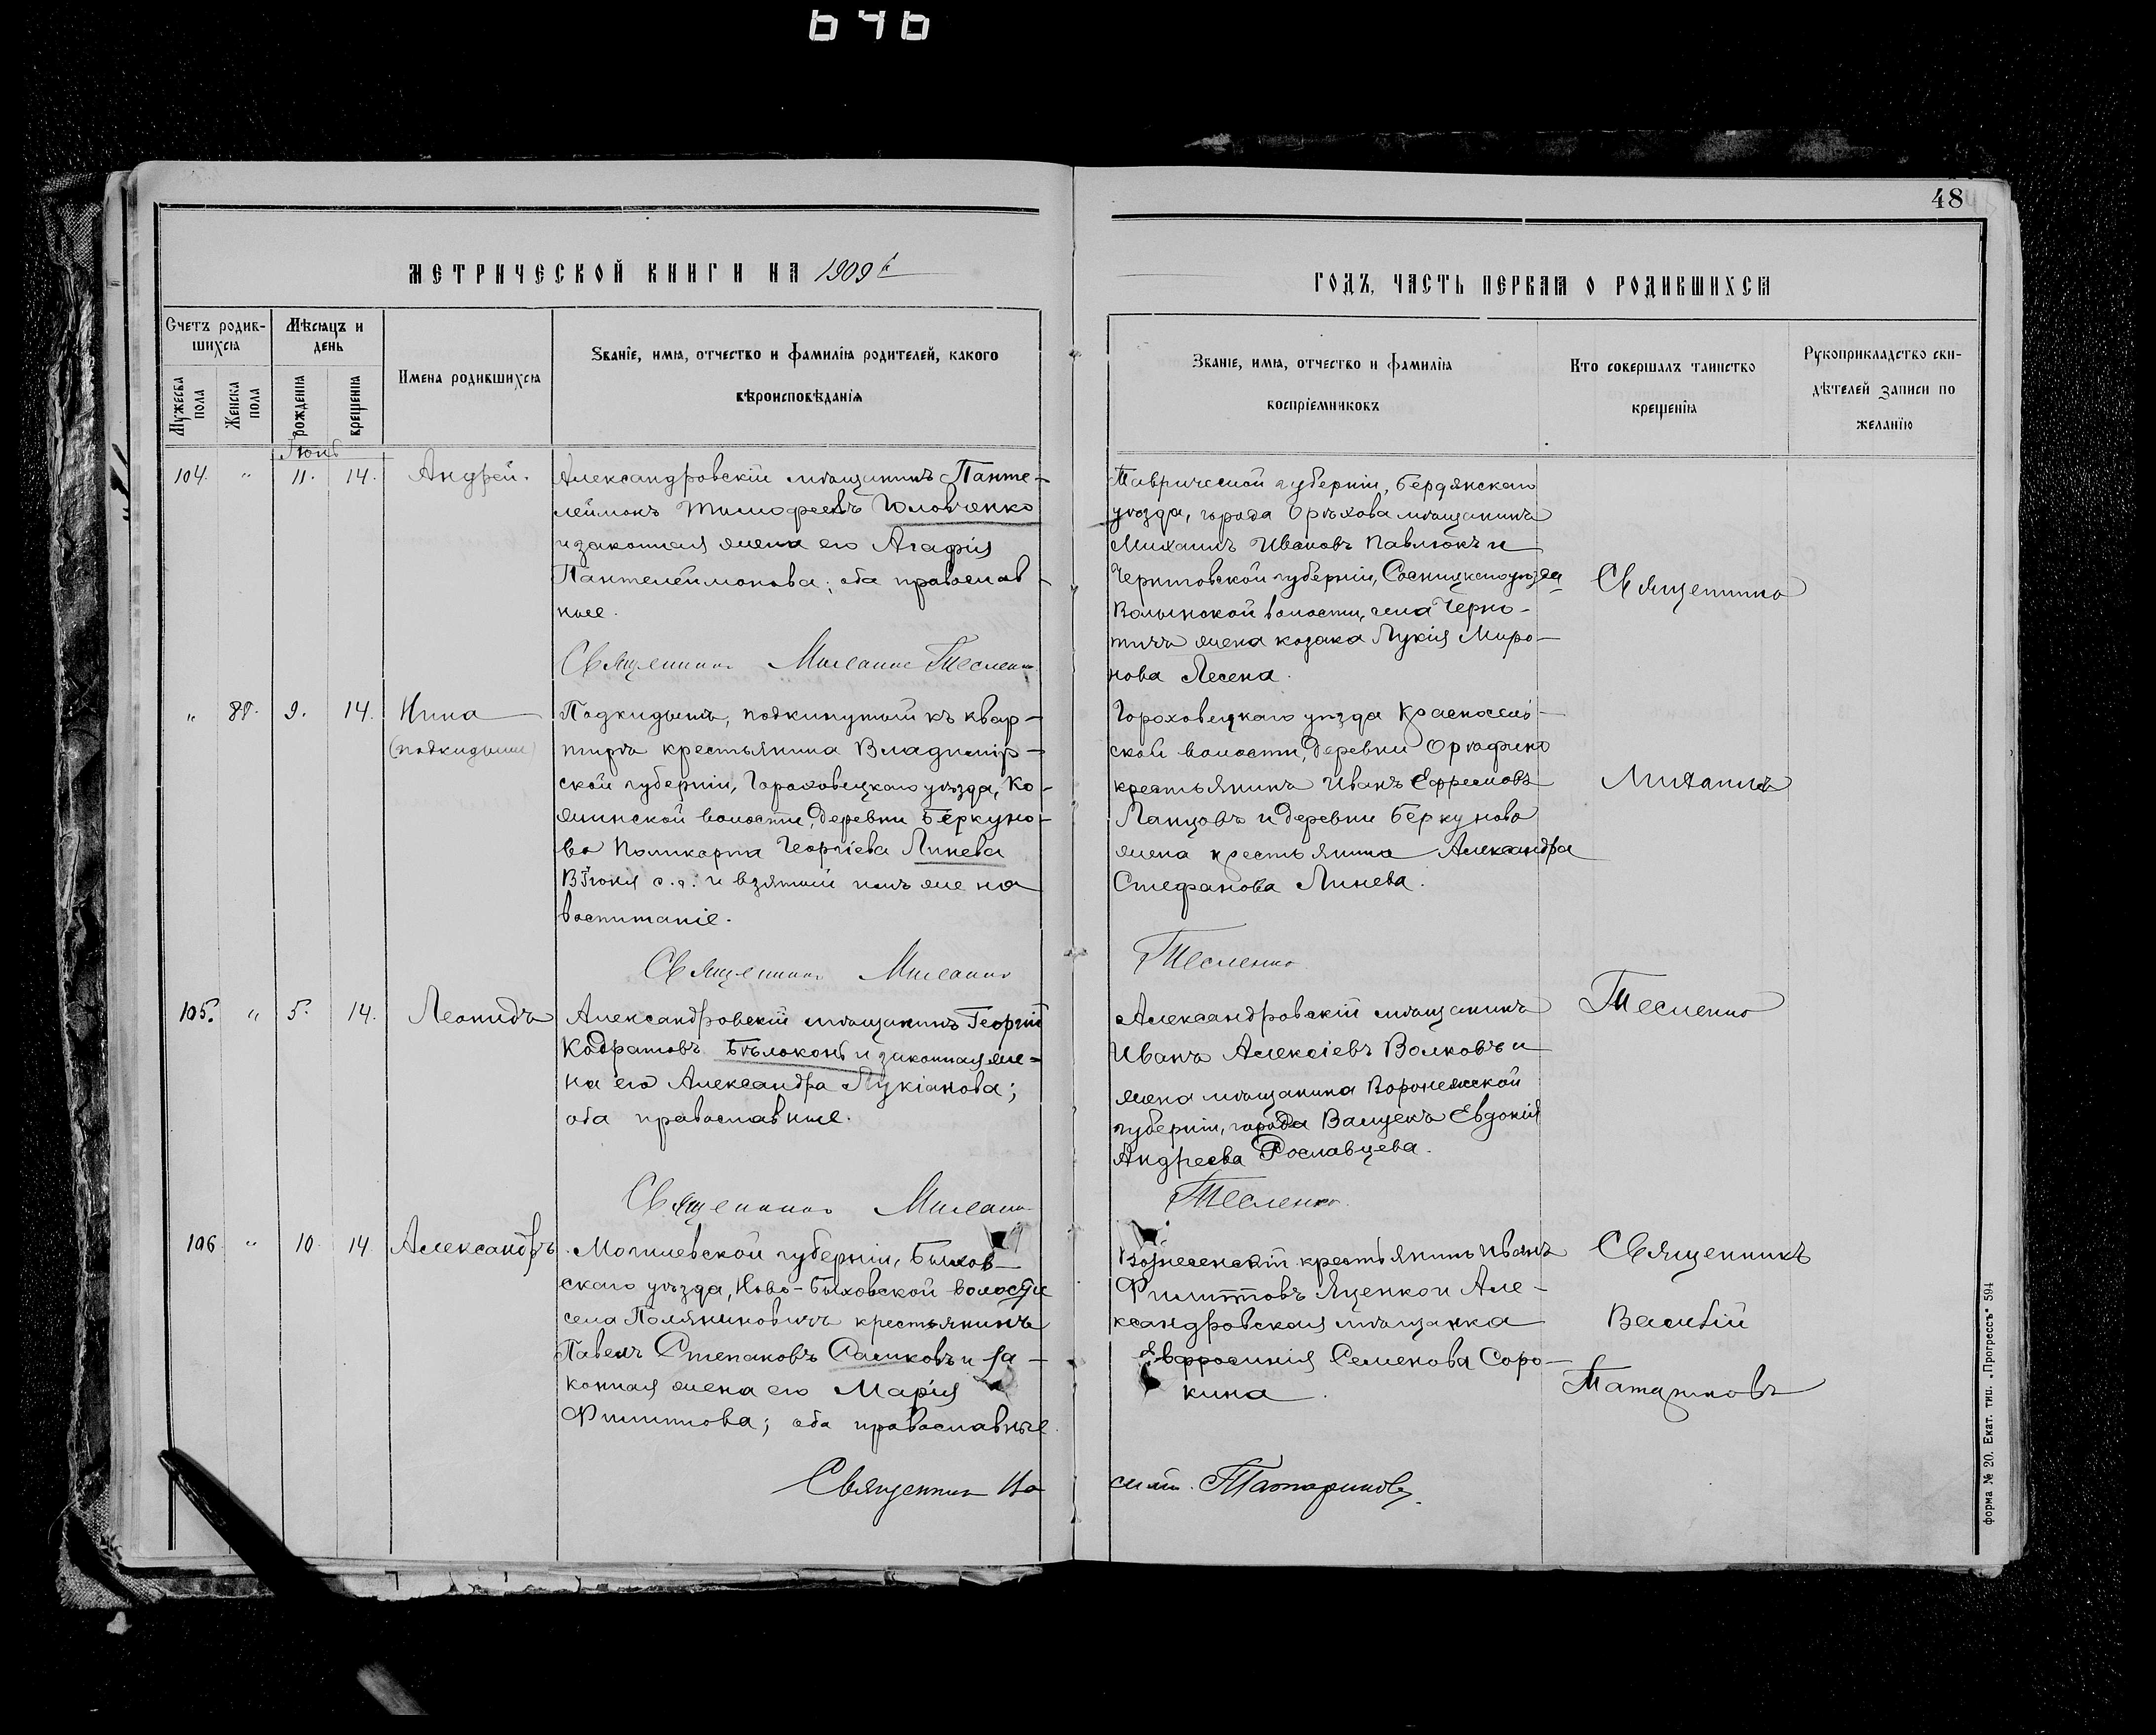 646
48
МЕТРИЧЕСКОЙ КНИГИ НА 1909 й
ГОДЪ, ЧАСТЬ ПЕРВАЯ О РОДИВШИХСЯ
Счетъ родив-
шихся
Мѣсяцъ и
день
Мужеска
пола
Женска
пола
рожденія
крещенія
Имена родившихся
Званіе, имя, отчество и фамилія родителей, какого
вѣроисповѣданія
Званіе, имя, отчество и фамилія
воспріемниковъ
Кто совершалъ таинство
крещенія
Рукоприкладство сви-
дѣтелей записи по
желанію
Іюнь
104. " 11. 14. Андрей.
Александровскій мѣщанинъ Панте-
леймонъ Тимофеевъ Головченко
и законная жена его Агафія
Пантелеймонова; оба православ-
ные.
Священникъ Михаилъ Тесленко
Таврической губерніи, Бердянскаго
уѣзда, города Орѣхова мѣщанинъ
Михаилъ Ивановъ Павлюкъ и
Черниговской губерніи, Сосницкаго уѣзда
Волынской волости, села Черно-
тичъ жена козака Лукія Миро-
нова Лесена.
Священникъ
" 88. 9. 14. Нина
(подкидышъ)
Подкидышъ, подкинутый къ квар-
тирѣ крестьянина Владимір-
ской губерніи, Гороховецкаго уѣзда, Ко-
жинской волости, деревни Беркуно-
во Поликарпа Георгіева Линева
9 Іюня с.г. и взятый имъ же на
воспитаніе.
Священникъ Михаилъ
Гороховецкаго уѣзда Красносель-
ской волости, деревни Орѣфино
крестьянинъ Иванъ Ефремовъ
Лапцовъ и деревни Беркуново
жена крестьянина Александра
Стефанова Линева.
Тесленко
Михаилъ
105. " 5. 14. Леонидъ
Александровскій мѣщанинъ Георгій
Кодратовъ Бѣлоконь и законная же-
на его Александра Лукіанова;
оба православные.
Священникъ Михаилъ
Александровскій мѣщанинъ
Иванъ Алексіевъ Волковъ и
жена мѣщанина Воронежской
губерніи, города Валуекъ Евдокія
Андреева Рославцева.
Тесленко.
Тесленко
106 " 10. 14 Александръ
Могилевской губерніи, Быхов-
скаго уѣзда, Ново-Быховской волости
села Поляниновичъ крестьянинъ
Павелъ Степановъ Саликовъ и за-
конная жена его Марія
Филиппова; оба православные.
Священникъ Ва
Вознесенскій крестьянинъ Иванъ
Филипповъ Яценко и Але-
ксандровская мѣщанка
Евфросинія Семенова Соро-
кина.
силій. Татариновъ.
Священникъ
Василій
Татариновъ
форма № 20. Екат. тип. „Прогрессъ" 594